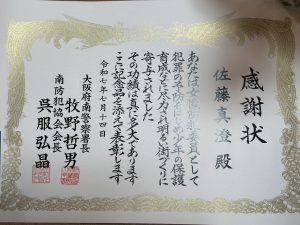 感謝状
佐藤真澄 殿
あなたは少年補導員として
犯罪の予防をはじめ少年の保護
育成などに尽力され明るい街づくりに
寄与されました
その功績は真に多大であります
ここに記念品を添えて表彰します
令和七年七月十四日
大阪府南警察署長
牧野哲男
南防犯協会会長
呉服弘晶